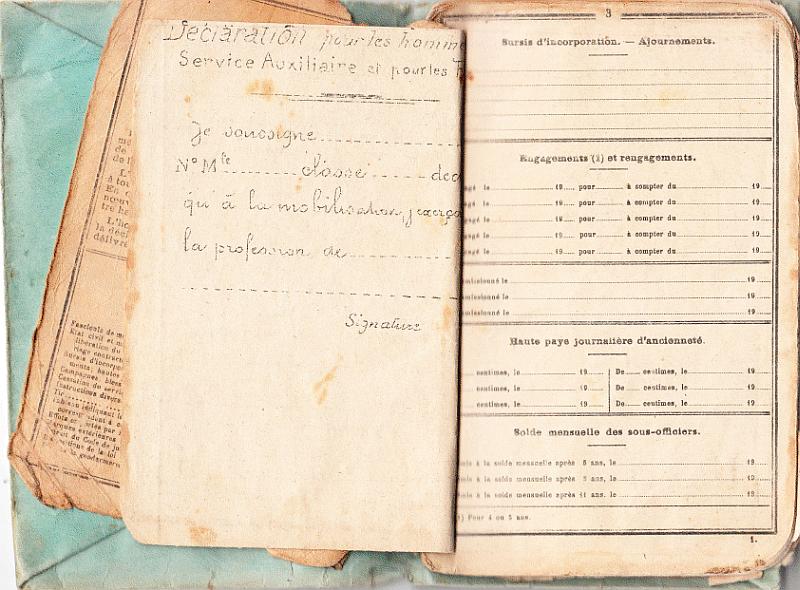 Déclaration pour les homm
Service Auxiliaire et pour les
Je soussigné
N° Mle classe déc
qu'à la mobilisation, j'exerça
la profession de
Signature
Fascicule de m
Etat civil et
libération du
Campagnes, bles
Cessation de servi
Instructions divers
3
Sursis d'incorporation. — Ajournements.
Engagements (1) et rengagements.
gé le 19 pour à compter du 19
gé le 19 pour à compter du 19
gé le 19 pour à compter du 19
gé le 19 pour à compter du 19
gé le 19 pour à compter du 19
missionné le 19
missionné le 19
missionné le 19
Haute paye journalière d'ancienneté.
centimes, le 19 De centimes, le 19
centimes, le 19 De centimes, le 19
centimes, le 19 De centimes, le 19
Solde mensuelle des sous-officiers.
à la solde mensuelle après 5 ans, le 19
à la solde mensuelle après ans, le 19
à la solde mensuelle après 11 ans, le 19
) Pour 4 ou 5 ans.
1.